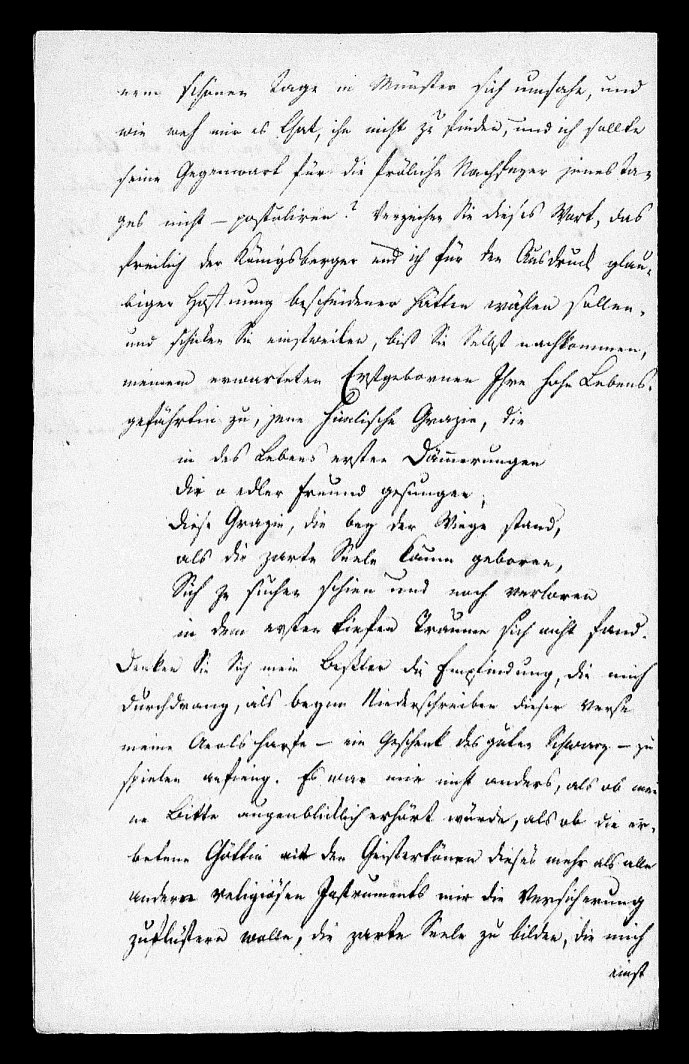 nem schönen Tage in Münster sich umsahe, und
wie weh mir es that, ihn nicht zu finden, und ich sollte
seine Gegenwart für die fröliche Nachfeyer jenes Ta-
ges nicht – postuliren? Verzeihen Sie dieses Wort, das
freilich der Königsberger und ich für den Ausdruck glau-
biger Hoffnung bescheidener hätten wählen sollen,
und schicken Sie einstweilen, biß Sie Selbst nachkommen,
meinem erwarteten Erstgebornen Ihre hohe Lebens-
gefährtin zu, jene himlische Grazie, die
in des Lebens ersten Dämmerungen
die o edler Freund gesungen,
diese Grazie, die bey der Wiege stand,
als die zarte Seele kaum geboren,
Sich zu suchen schien und noch verloren
in dem ersten tiefen Traume sich nicht fand.
Denken Sie Sich mein Beßter die Empfindung, die mich
durchdrang, als beym Niederschreiben dieser Verse
meine Aeolsharfe – ein Geschenk des guten Schwarz – zu
spielen anfieng. Es war mir nicht anders, als ob mei
ne Bitte augenbliklich erhört würde, als ob die er-
betene Göttin mit den Geistertönen dieses mehr als alle
andern religiösen Instruments mir die Versicherung
zuflüstern wolle, die zarte Seele zu bilden, die mich
einst